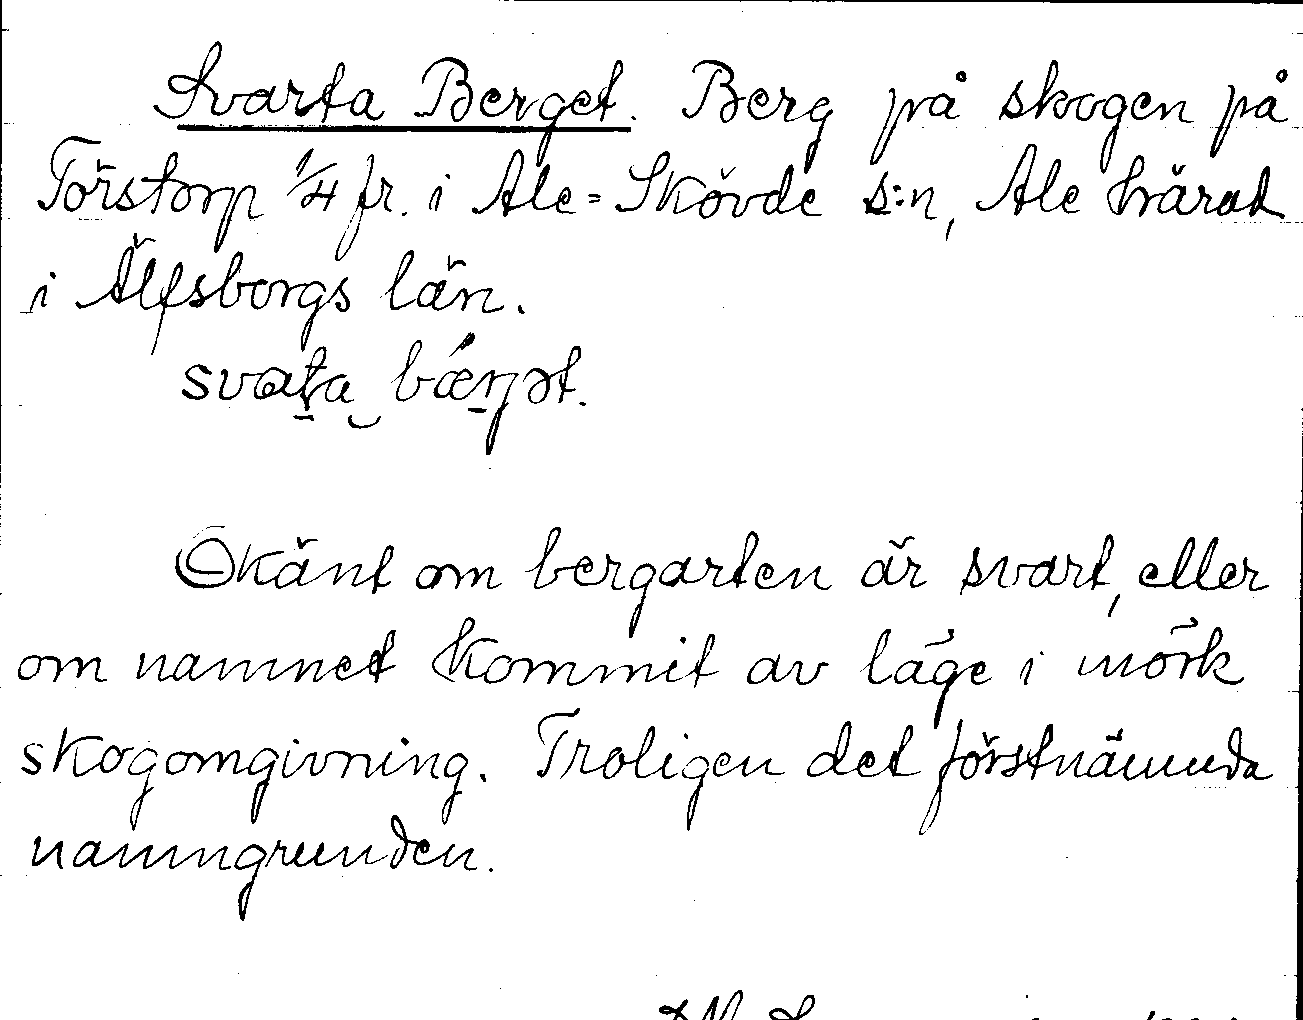 Svarta Berget. Berg på skogen på
Törstorp 1/4 fr. i Ale=Skövde s:n, Ale härad
i Älfsborgs län.
svaṯa‿ bǽṉət.
Okänt om bergarten är svart, eller
om namnet kommit av läge i mörk
skogomgivning. Troligen det förstnämnda
namngrunden.